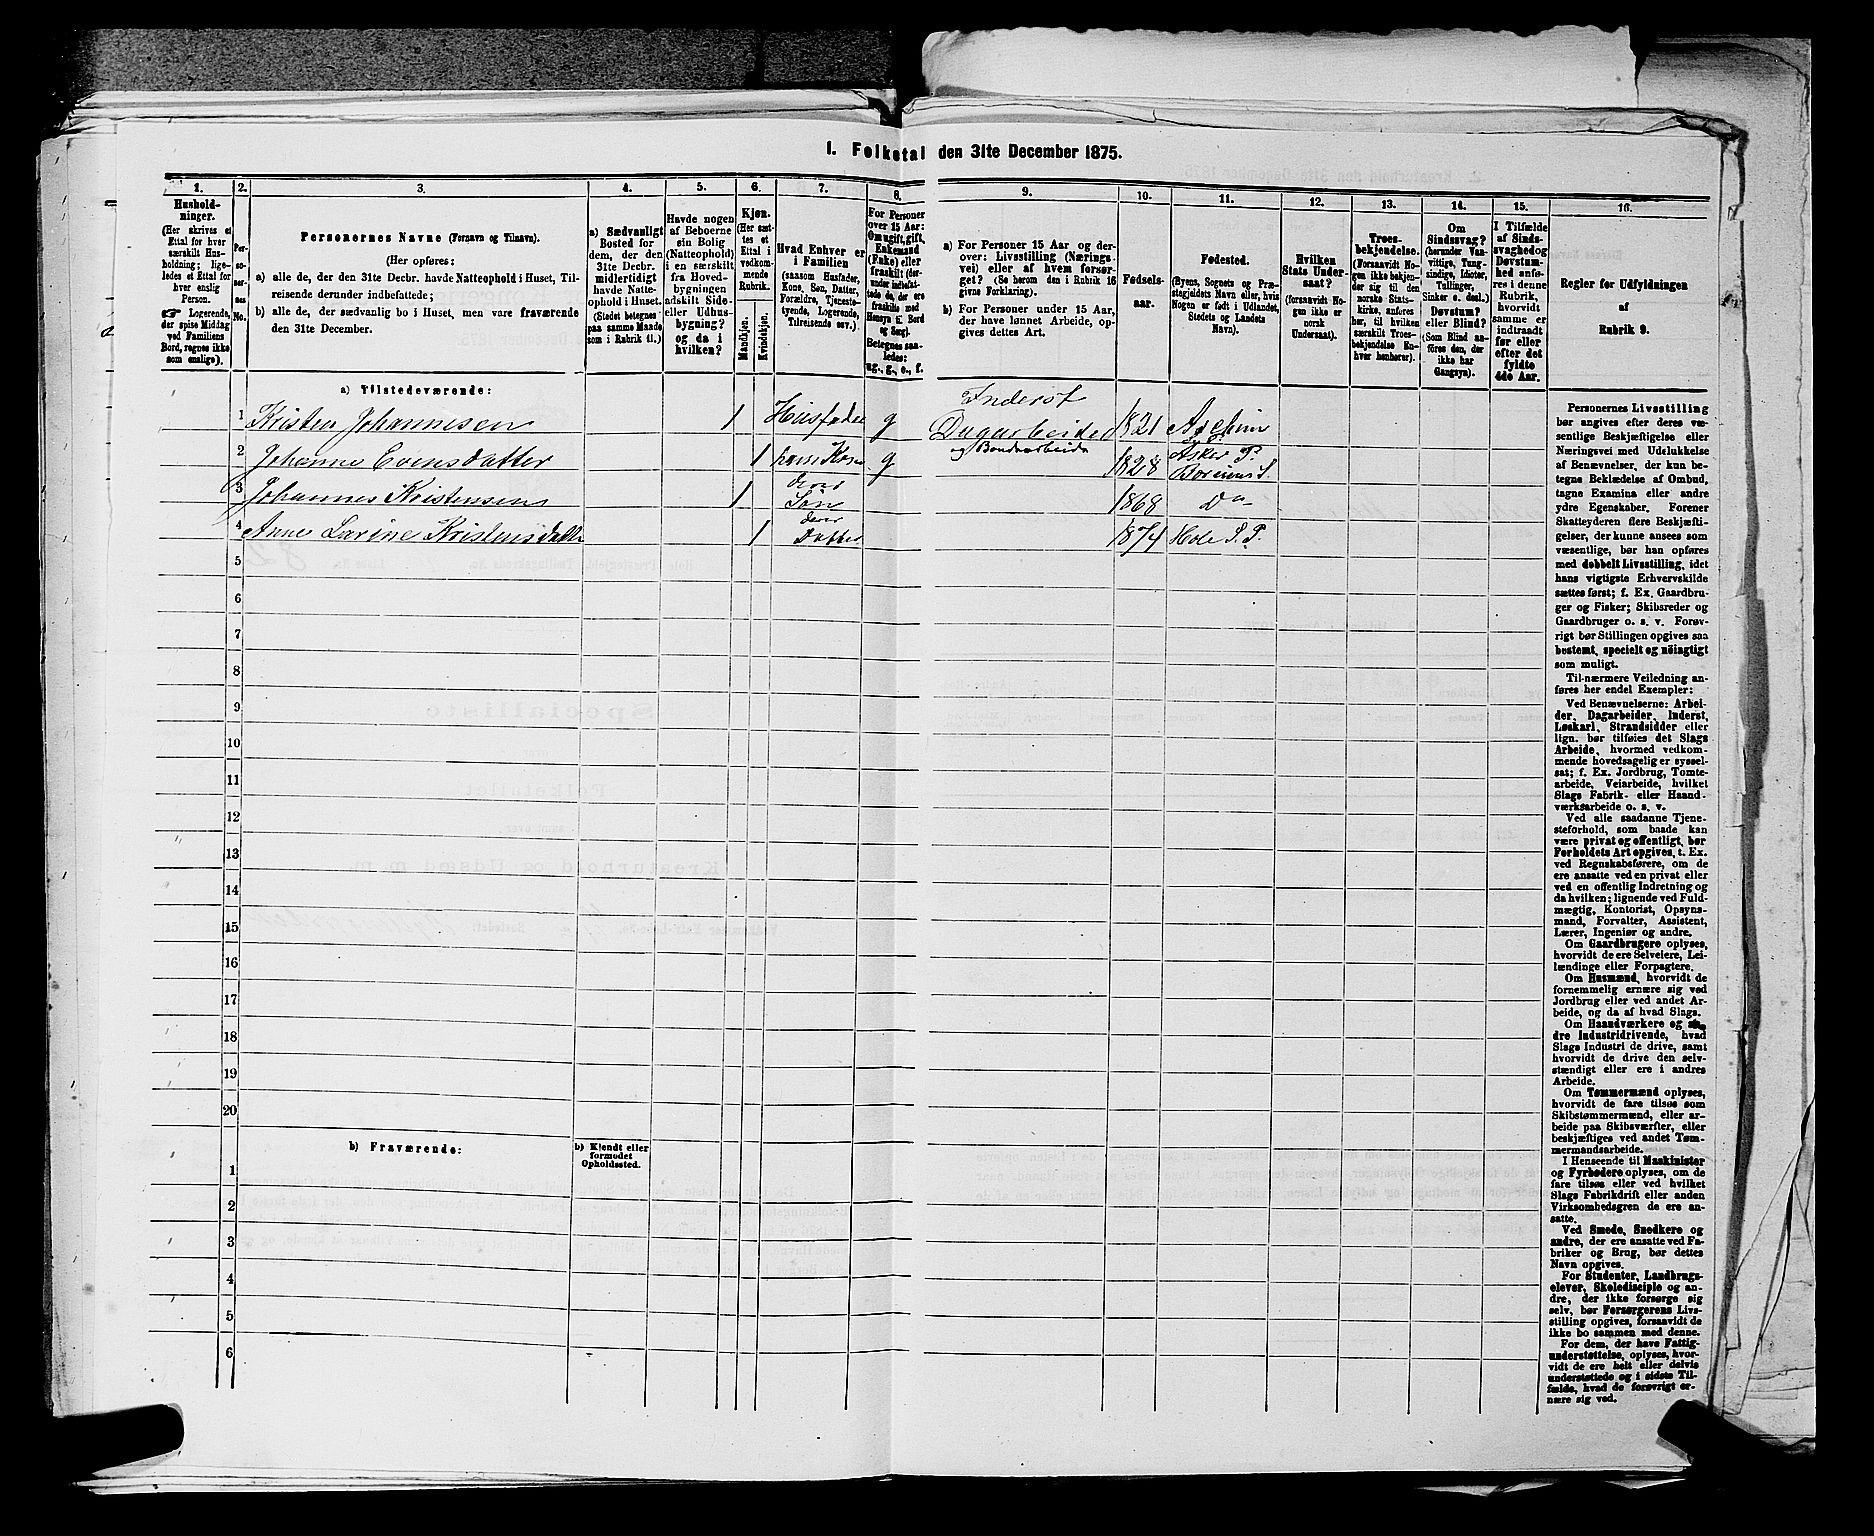 I. Folketal den 31te December 1875.
1. 2. 3. 4. 5. 6. 7. 8. 9. 10. 11. 12. 13. 14. 15. 16.
Hushold-
ninger.
(Her skrives et
Ettal for hver
særskilt Hus-
holdning; lige-
ledes et Ettal for
hver enslig
Person.
Logerende,
der spise Middag
ved Familiens
Bord, regnes ikke
som enslige).
Per-
so-
ner-
nes
No.
Personernes Navne (Fornavn og Tilnavn).
(Her opføres:
a) alle de, der den 31te Decbr. havde Natteophold i Huset, Til-
reisende derunder indbefattede;
b) alle de, der sædvanlig bo i Huset, men vare fraværende
den 31te December.
a) Sædvanligt
Bosted for
dem, der den
31te Decbr.
midlertidigt
havde Natte-
ophold i Huset.
(Stedet betegnes
paa samme Maade
som i Rubrik 11.)
Havde nogen
af Beboerne
sin Bolig
(Natteophold)
i en særskilt
fra Hoved-
bygningen
adskilt Side-
eller Udhus-
bygning?
og da i
hvilken?
Kjøn.
(Her sæt-
tes et
Ettal i
vedkom-
mende
Rubrik.
Mandkjøn.
Kvindekjøn.
Hvad Enhver er
i Familien
(saasom Husfader,
Kone, Søn, Datter,
Forældre, Tjeneste-
tyende, Logerende,
Tilreisende osv.)
For Personer
over 15 Aar:
Om ugift, gift,
Enkemand
(Enke) eller
fraskilt (der-
under indbefat-
tede de, der ere
fraskilte med
Hensyn til Bord
og Seng).
Betegnes saa-
ledes:
ug., g., e., f.
a) For Personer 15 Aar og der-
over: Livsstilling (Nærings-
vei) eller af hvem forsør-
get? (Se herom den i Rubrik 16
givne Forklaring).
b) For Personer under 15 Aar,
der have lønnet Arbeide, op-
gives dettes Art.
Fødsels-
aar.
Fødested.
(Byens, Sognets og Præ-
stegjeldets Navn eller, hvis
Nogen er født i Udlandet,
Stedets og Landets
Navn).
Hvilken
Stats Under-
saat?
(forsaavidt No-
gen ikke er
norsk
Undersaat).
Troes-
bekjendelse.
(Forsaavidt No-
gen ikke bekjen-
der sig til den
norske Stats-
kirke, anføres
her, til hvilken
særskilt Troes-
bekjendelse En-
hver henhører).
Om
Sindssvag?
(herunder Van-
vittige, Tung-
sindige, Idioter,
Tullinger,
Sinker o. desl.)
Døvstum?
eller Blind?
(Som Blind an-
føres den, der
ikke har
Gangsyn).
I Tilfælde
af Sinds-
svaghed og
Døvstum-
hed anfø-
res i denne
Rubrik,
hvorvidt
samme er
indtraadt
før eller
efter det
fyldte
4de Aar.
Regler for Udfyldningen
af
Rubrik 9.
a) Tilstedeværende:
Inderst
1 Kristen Johannesen 1 Husfader g Dagarbeider 1821
og Bondearbeide
2 Johanne Evensdatter 1 hans Kone g 1828 Asker P.
3 Johannes Kristensen 1 deres Søn 1868 Do
4 Anne Lovine Kristensdatter 1 deres Datter 1874 Hole S. P.
5
6
7
8
9
10
11
12
13
14
15
16
17
18
19
20
b) Fraværende:
b) Kjendt eller
formodet
Opholdssted.
1
2
3
4
5
6
Personernes Livsstilling
bør angives efter deres væ-
sentlige Beskjæftigelse eller
Næringsvei med Udelukkelse
af Benævnelser, der kun be-
tegne Beklædelse af Ombud,
tagne Examina eller andre
ydre Egenskaber. Forener
Skatteyderen flere Beskjæfti-
gelser, der kunne ansees som
væsentlige, bør han opføres
med dobbelt Livsstilling, idet
hans vigtigste Erhvervskilde
sættes først; f. Ex. Gaardbru-
ger og Fisker; Skibsreder og
Gaardbruger o. s. v. Forøv-
rigt bør Stillingen opgives saa
bestemt, specielt og nöiagtigt
som muligt.
Til nærmere Veiledning an-
føres her endel Exempler:
Ved Benævnelserne: Arbei-
der, Dagarbeider, Inderst,
Løskarl, Strandsidder eller
lign. bør tilføies det Slags
Arbeide, hvormed vedkom-
mende hovedsagelig er syssel-
sat; f. Ex. Jordbrug, Tomte-
arbeide, Veiarbeide, hvilket
Slags Fabrik- eller Haand-
værksarbeide o. s. v.
Ved alle saadanne Tjene-
steforhold, som baade kan
være privat og offentligt, bør
Forholdets Art opgives, t. Ex.
ved Regnskabsførere, om de
ere ansatte ved en privat eller
ved en offentlig Indretning og
da hvilken; lignende ved Fuld-
mægtig, Kontorist, Opsyns-
mand, Forvalter, Assistent,
Lærer, Ingeniør og andre.
Om Gaardbrugere oplyses,
hvorvidt de ere Selveiere, Lei-
lændinge eller Forpagtere.
Om Husmænd, hvorvidt de
fornemmelig ernære sig ved
Jordbrug eller ved andet Ar-
beide, og da af hvad Slags.
Om Haandværkere og an-
dre Industridrivende, hvad
Slags Industri de drive, samt
hvorvidt de drive den selv-
stændigt eller ere i andres
Arbeide.
Om Tømmermænd oplyses,
hvorvidt de fare tilsøs som
Skibstømmermænd, eller ar-
beide paa Skibsværfter, eller
beskjæftiges ved andet Tøm-
mermandsarbeide.
I Henseende til Maskinister
og Fyrbødere oplyses, om de
fare tilsøs eller ved hvilket
Slags Fabrikdrift eller anden
Virksomhedsgren de ere an-
satte.
Ved Smede, Snedkere og
andre, der ere ansatte ved Fa-
briker og Brug, bør dettes
Navn opgives.
For Studenter, Landbrugs-
elever, Skoledisciple og an-
dre, der ikke forsørge sig
selv, bør Forsørgerens Livs-
stilling opgives, forsaavidt de
ikke bo sammen med denne.
For dem, der have Fattig-
understøttelse, oplyses, hvor-
vidt de ere helt eller delvis
understøttede og i sidste Til-
fælde, hvad de forøvrigt er-
nære sig ved.